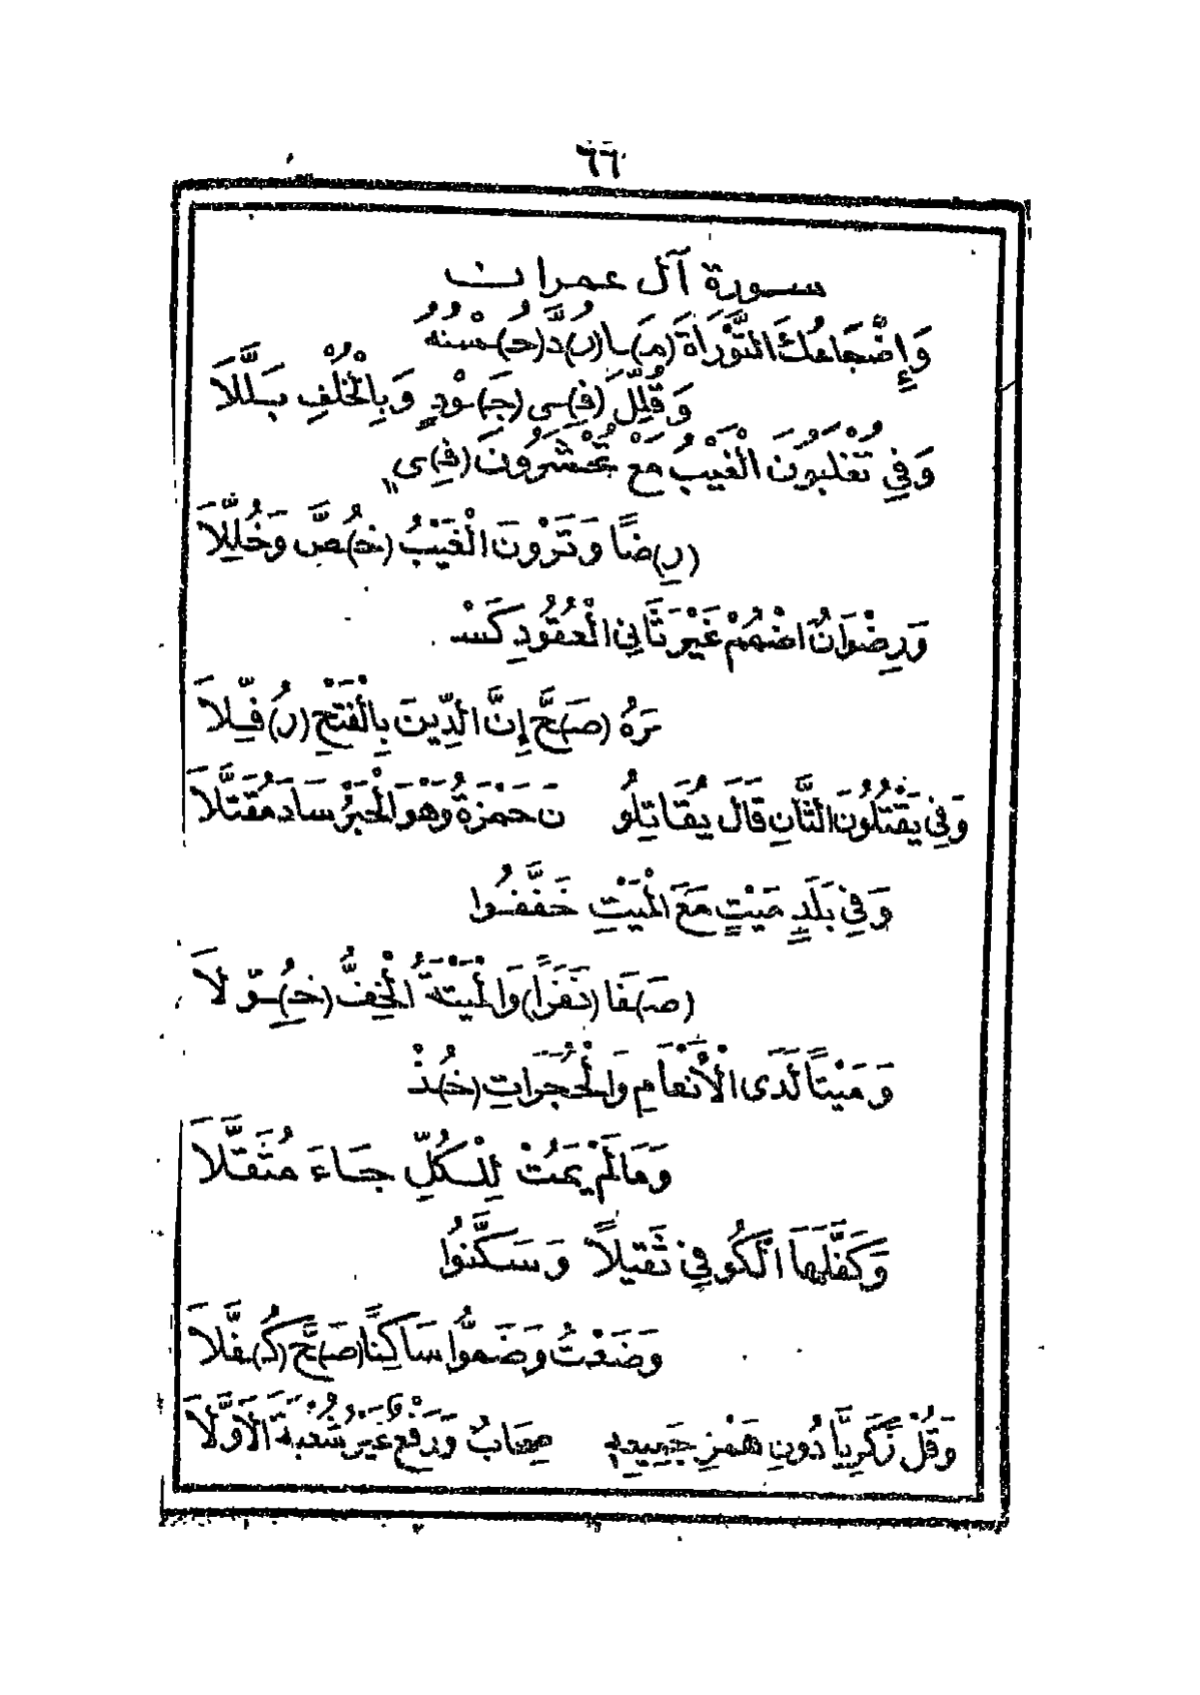 ٦٦
سورة آل عمران
وَإِضْجَاعُكَ التَّوْرَاةَ (مَ)ـا (رُ)دَّ (حُ)ـسْنُهُ
وَقُلِّلَ (فِـ)ـى (جَـ)ـوْدٍ وَبِالْخُلْفِ بَـلَّلَا
وَفِي تُغْلَبُونَ الْغَيْبُ مَعْ تُحْشَرُونَ (فِـ)ـى
(رِ)ضًا وَتَرَوْنَ الْغَيْبُ (خُـ)ـصَّ وَخُلِّلَا
وَرِضْوَانٌ اضْمُمْ غَيْرَ ثَانِي الْعُقُودِ كَسْـ
ـرَهُ (صَـ)ـحَّ إِنَّ الدِّينَ بِالْفَتْحِ (رُ)فِّـلَا
وَفِي يَقْتُلُونَ الثَّانِ قَالَ يُقَاتِلُو نَ حَمْزَةُ وَهْوَ الْحَبْرُ سَادَ مُقَتَّلَا
وَفِي بَلَدٍ مَيْتٍ مَعَ الْمَيْتِ خَفَّفُـوا
(صَـ)ـفَا (نَـفَرًا) وَالْمَيْتَةُ الْخِفُّ (خُـ)ـوِّلَا
وَمَيْتًا لَدَى الْأَنْعَامِ وَالْحُجُرَاتِ (خُـ)ـذْ
وَمَا لَمْ يَمُتْ لِلْـكُلِّ جَـاءَ مُثَقَّـلَا
وَكَفَّلَهَا الْكُوفِي ثَقِيلًا وَسَـكَّنُوا
وَضَعْتُ وَضَمُّوا سَاكِنًا (صَـ)ـحَّ (كُـ)ـفَّلَا
وَقُلْ زَكَرِيَّا دُونِ هَمْزِ جَمِيعِهِ صِحَابٌ وَرَفْعٌ غَيْرُ شُعْبَةَ الْأَوَّلَا